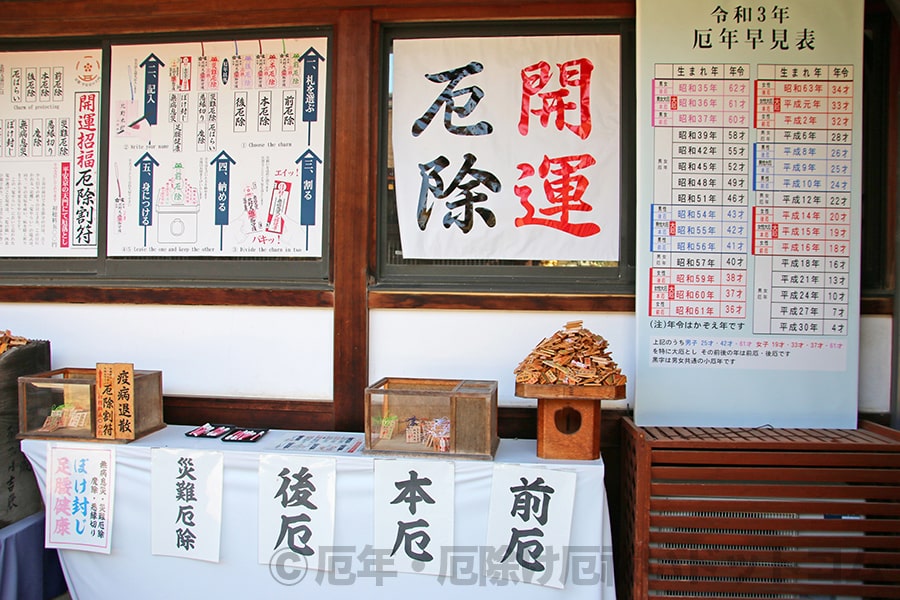 開運招福厄除割符
平安京の大門にて結満とし
Charm of protecting
前厄除
本厄除
後厄除
厄ばらい
災難厄除
魔除
悪縁切り
ぼけ封じ
一、札を選ぶ
① Choose the charm
前厄除
本厄除
後厄除
厄ばらい
災難厄除
魔除
悪縁切り
ぼけ封じ
足腰健康
無病息災
二、記入
② Write your name
三、割る
エイッ!
バキッ!
③ Divide the charm in two
四、納める
五、身につける
④⑤ Leave the one and keep the other
開運
厄除
令和3年
厄年早見表
生まれ年 年令
昭和35年 62才
昭和36年 61才
昭和37年 60才
昭和39年 58才
昭和42年 55才
昭和45年 52才
昭和48年 49才
昭和51年 46才
昭和54年 43才
昭和55年 42才
昭和56年 41才
昭和57年 40才
昭和59年 38才
昭和60年 37才
昭和61年 36才
生まれ年 年令
昭和63年 34才
平成元年 33才
平成2年 32才
平成6年 28才
平成8年 26才
平成9年 25才
平成10年 24才
平成12年 22才
平成14年 20才
平成15年 19才
平成16年 18才
平成18年 16才
平成21年 13才
平成24年 10才
平成27年 7才
平成30年 4才
(注)年令はかぞえ年です
上記のうち男子 25才・42才・61才 女子 19才・33才・37才・61才
を特に大厄とし その前後の年は前厄・後厄です
黒字は男女共通の小厄年です
疫病退散
厄除割符
無病息災・災難厄除
魔除・悪縁切り
ぼけ封じ
足腰健康
災難厄除
後厄
本厄
前厄